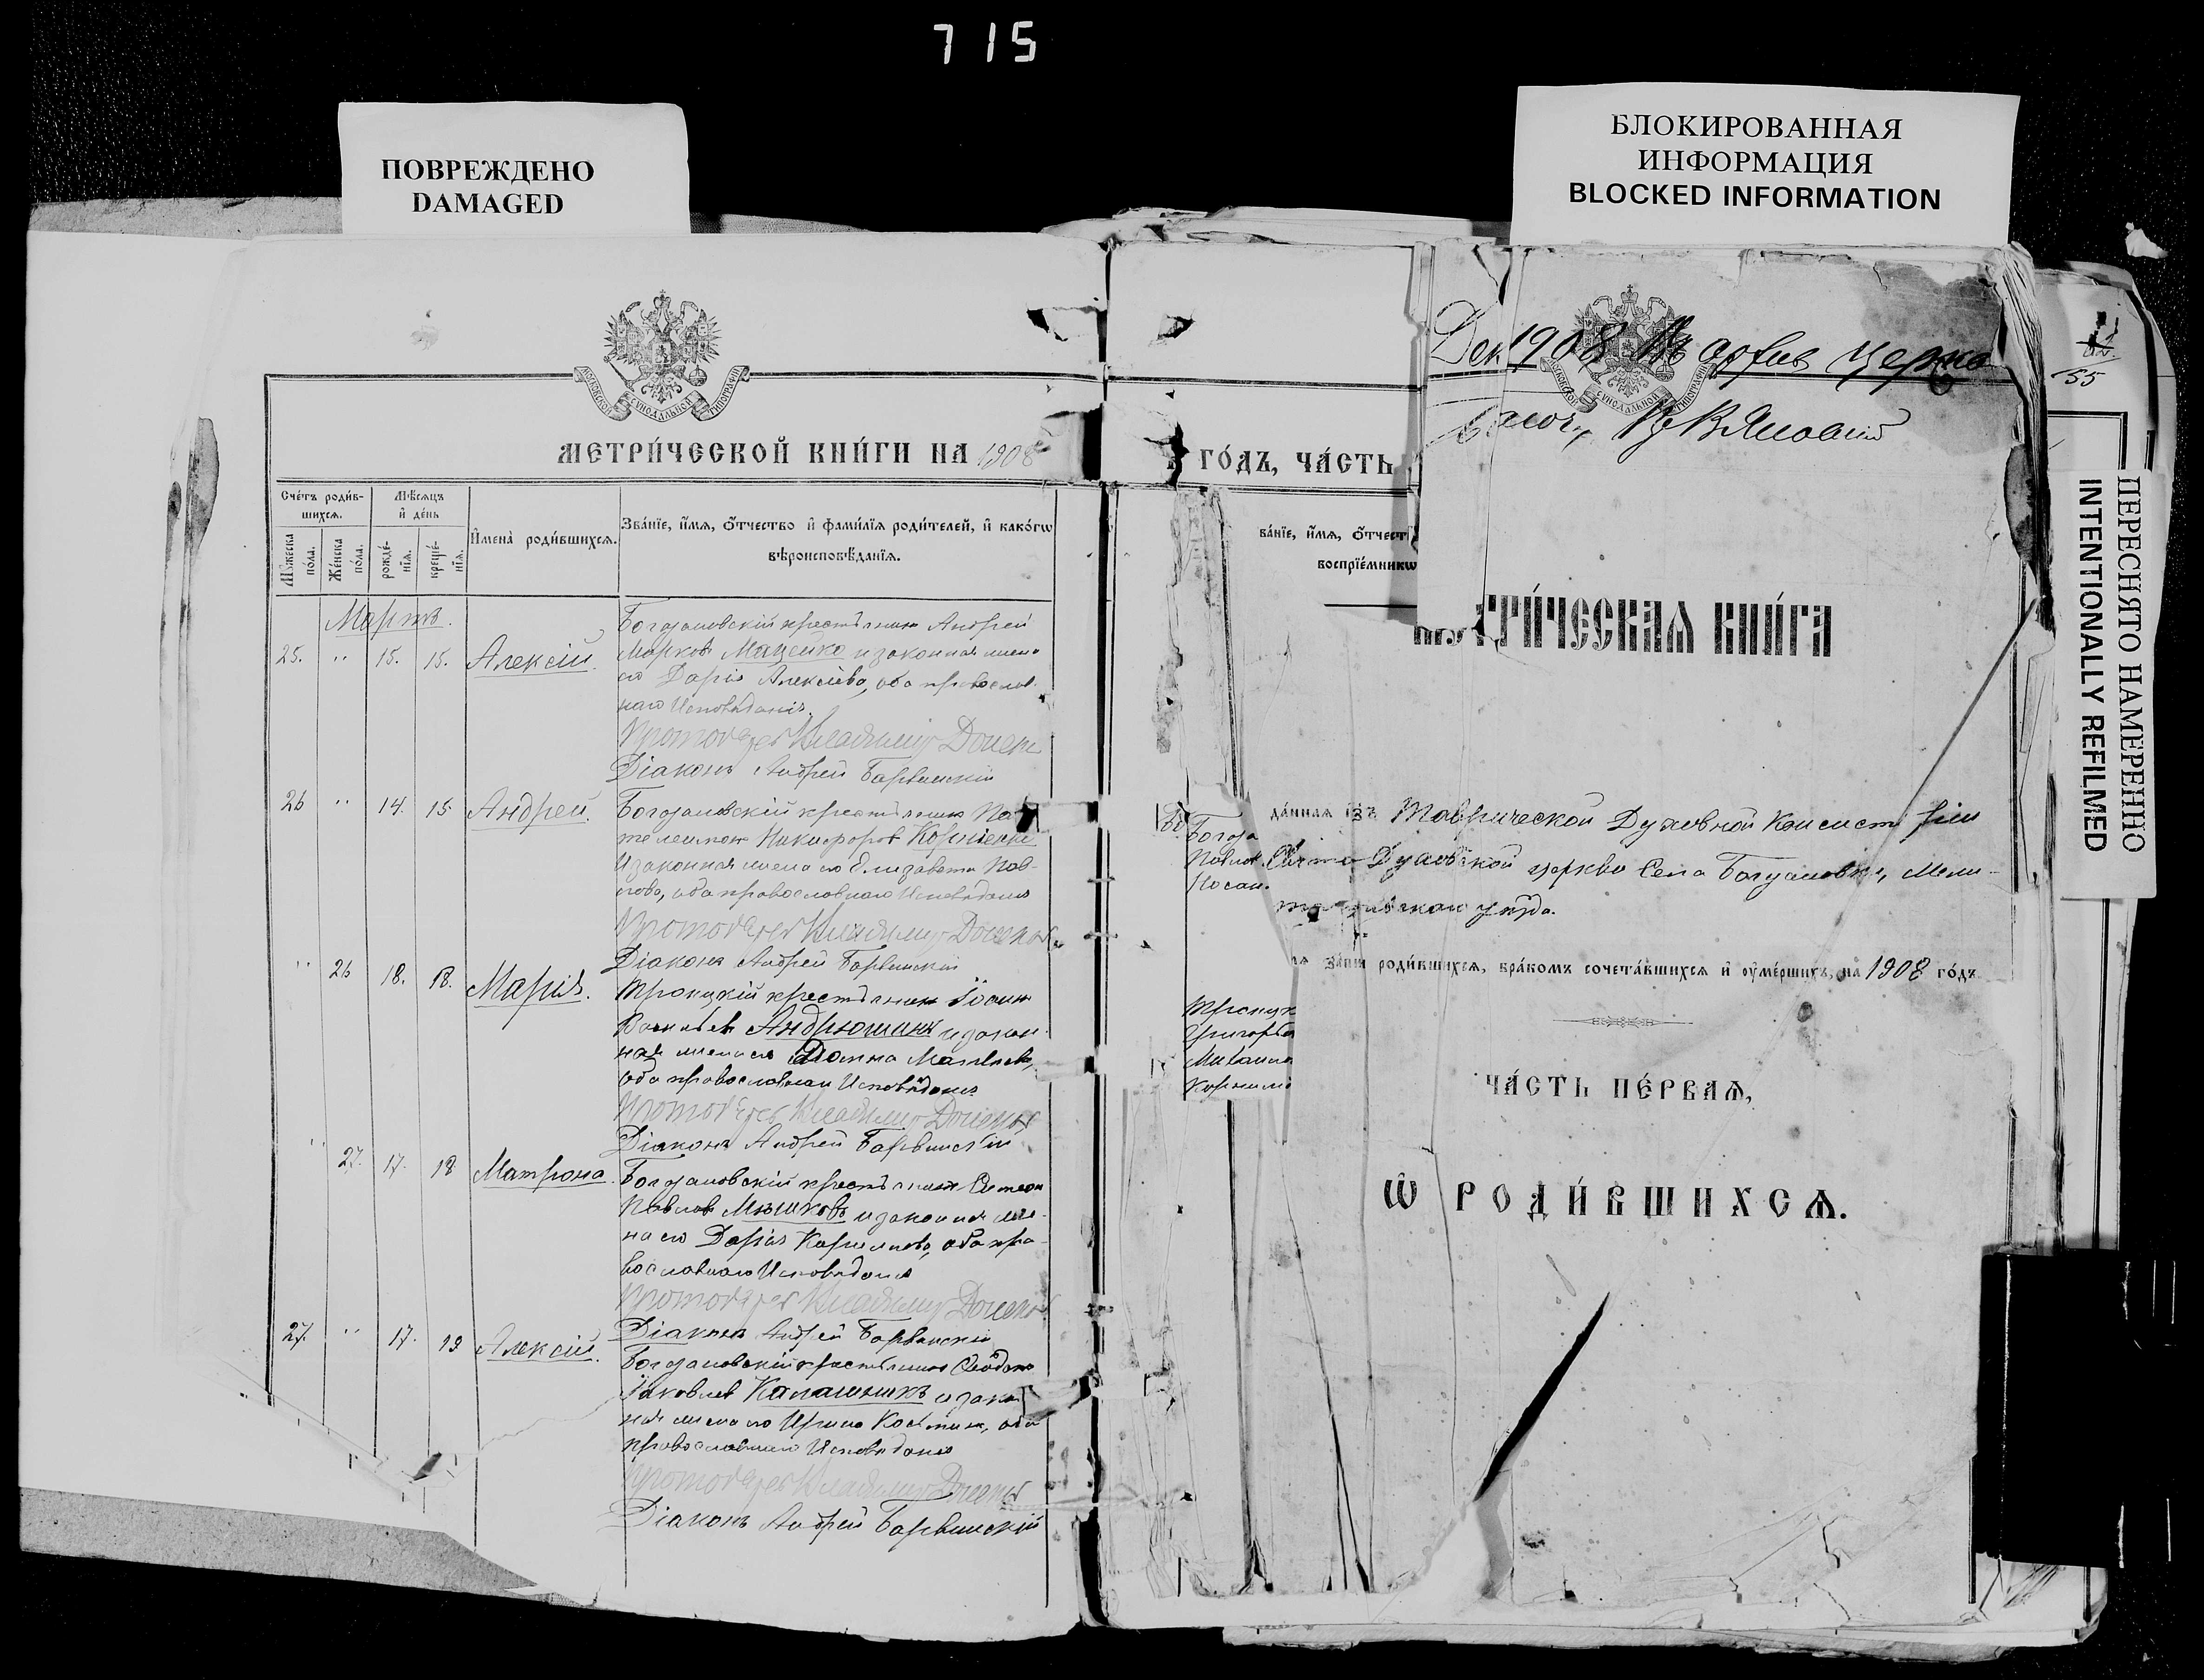 715
ПОВРЕЖДЕНО
DAMAGED
БЛОКИРОВАННАЯ
ИНФОРМАЦИЯ
BLOCKED INFORMATION
ПЕРЕСНЯТО НАМЕРЕННО
INTENTIONALLY REFILMED
55
МОСКОВСКОЙ СѴНОДАЛЬНОЙ ТИПОГРАФІИ
МЕТРИ́ЧЕСКОЙ КНИ́ГИ НА 1908
Сче́тъ роди́в-
шихсѧ.
Мѣ́сѧцъ
и҆ де́нь
Мꙋ́жеска
по́ла.
Же́нска
по́ла.
рожде́-
нїѧ.
креще́-
нїѧ.
И҆мена̀ роди́вшихсѧ.
Зва́нїе, и҆́мѧ, ѻ҆́тчество и҆ фами́лїѧ роди́телей, и҆ како́гѡ
вѣроисповѣ́данїѧ.
Мартъ.
25. " 15. 15. Алексій.
Богдановскій крестьянинъ Андрей
Марковъ Мацейко и законная жена
его Дарія Алексіева, оба православ-
наго Исповѣданія.
Протоіерей Владимиръ Доценко
Діаконъ Андрей Барвинскій
26 " 14. 15 Андрей.
Богдановскій крестьянинъ Пан
телеимонъ Никифоровъ Корніенко
и законная жена его Елизавета Пав-
лова, оба православнаго Исповѣданія
Протоіерей Владимиръ Доценко
Діаконъ Андрей Барвинскій
" 26 18. 18. Марія.
Троицкій крестьянинъ Іоаннъ
Васильевъ Андрюшинъ и закон-
ная жена его Домна
оба православнаго Исповѣданія
Протоіерей Владимиръ Доценко
Діаконъ Андрей Барвинскій
" 27. 17. 18 Матрона.
Богдановскій крестьянинъ Симеонъ
Павловъ Мѣшковъ и законная же-
на его Дарія оба пра-
вославнаго Исповѣданія
Протоіерей Владимиръ Доценко
Діаконъ Андрей Барвинскій
27. " 17. 19 Алексій.
Богдановскій крестьянинъ
Іаковлевъ Калашникъ и закон
ная жена его Ирина оба
православнаго Исповѣданія
Протоіерей Владимиръ Доценко
Діаконъ Андрей Барвинскій
ГО́ДЪ, ЧА́СТЬ
ва́нїе, и҆́мѧ, ѻ҆́тчест
воспрїе́мникѡ
Богда
Павлов
Троицк
Григорьев
Михаил
Корнил
1908 Въ архивъ церкв
МОСКОВСКОЙ СѴНОДАЛЬНОЙ ТИПОГРАФІИ
ТРИ́ЧЕСКАѦ КНИ́ГА
да́ннаѧ и҆зъ Таврической Духовной Консисторіи
Свято Духовской церкви села Богдановки, Мели-
топольскаго уѣзда.
роди́вшихсѧ, бра́комъ сочета́вшихсѧ и҆ ᲂу҆ме́ршихъ, на 1908 го́дъ
ЧА́СТЬ ПЕ́РВАѦ,
Ѽ РОДИ́ВШИХСѦ.